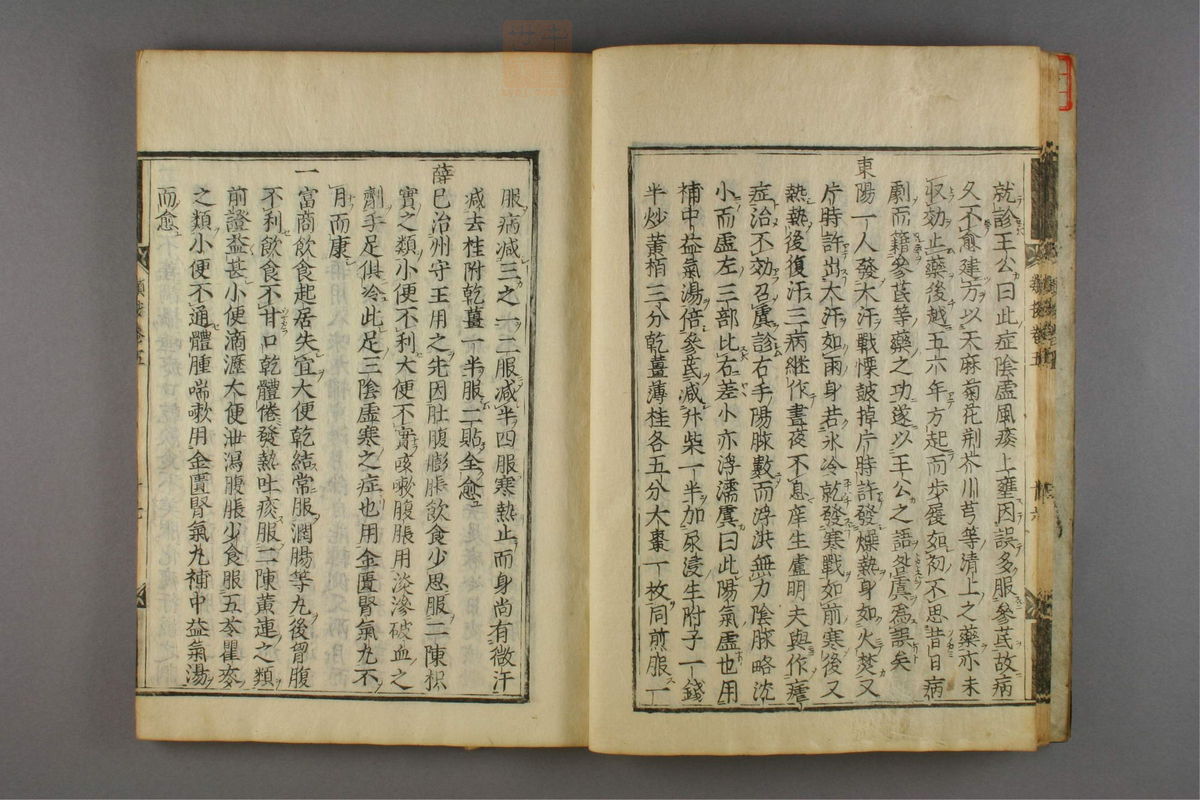 就診王公曰此症陰虛風痰上壅因誤多服參芪故病
久不愈建方以天麻菊花荊芥川芎等清上之藥亦未
収効止藥後越五六年方起而步履如初不思昔日病
劇而籍參芪等藥之功遂以王公之語咎虞為誤矣
東陽一人發大汗戰慄鼓掉片時許發燥熱身如火焚又
片時許出大汗如雨身若氷冷就發寒戰如前寒後又
熱熱後復汗三病継作晝夜不息庠生盧明夫與作瘧
症治不効召虞診右手陽脉數而浮洪無力陰脉略沈
小而虛左三部比右差小亦浮濡虞曰此陽氣虛也用
補中益氣湯倍參芪減升柴一半加尿浸生附子一錢
半炒黃栢三分乾薑薄桂各五分大棗一枚同煎服一
服病減三之一二服減半四服寒熱止而身尚有微汗
減去桂附乾薑一半服二貼全愈
薛已治州守王用之先因肚腹膨脹飲食少思服二陳枳
實之類小便不利大便不實咳嗽腹脹用淡滲破血之
劑手足俱冷此足三陰虛寒之症也用金匱腎氣丸不
月而康
一富商飲食起居失宜大便乾結常服潤腸等丸後胷腹
不利飲食不甘口乾體倦發熱吐痰服二陳黃連之類
前證益甚小便滴瀝大便泄瀉腹脹少食服五苓瞿麥
之類小便不通體腫喘嗽用金匱腎氣丸補中益氣湯
而愈